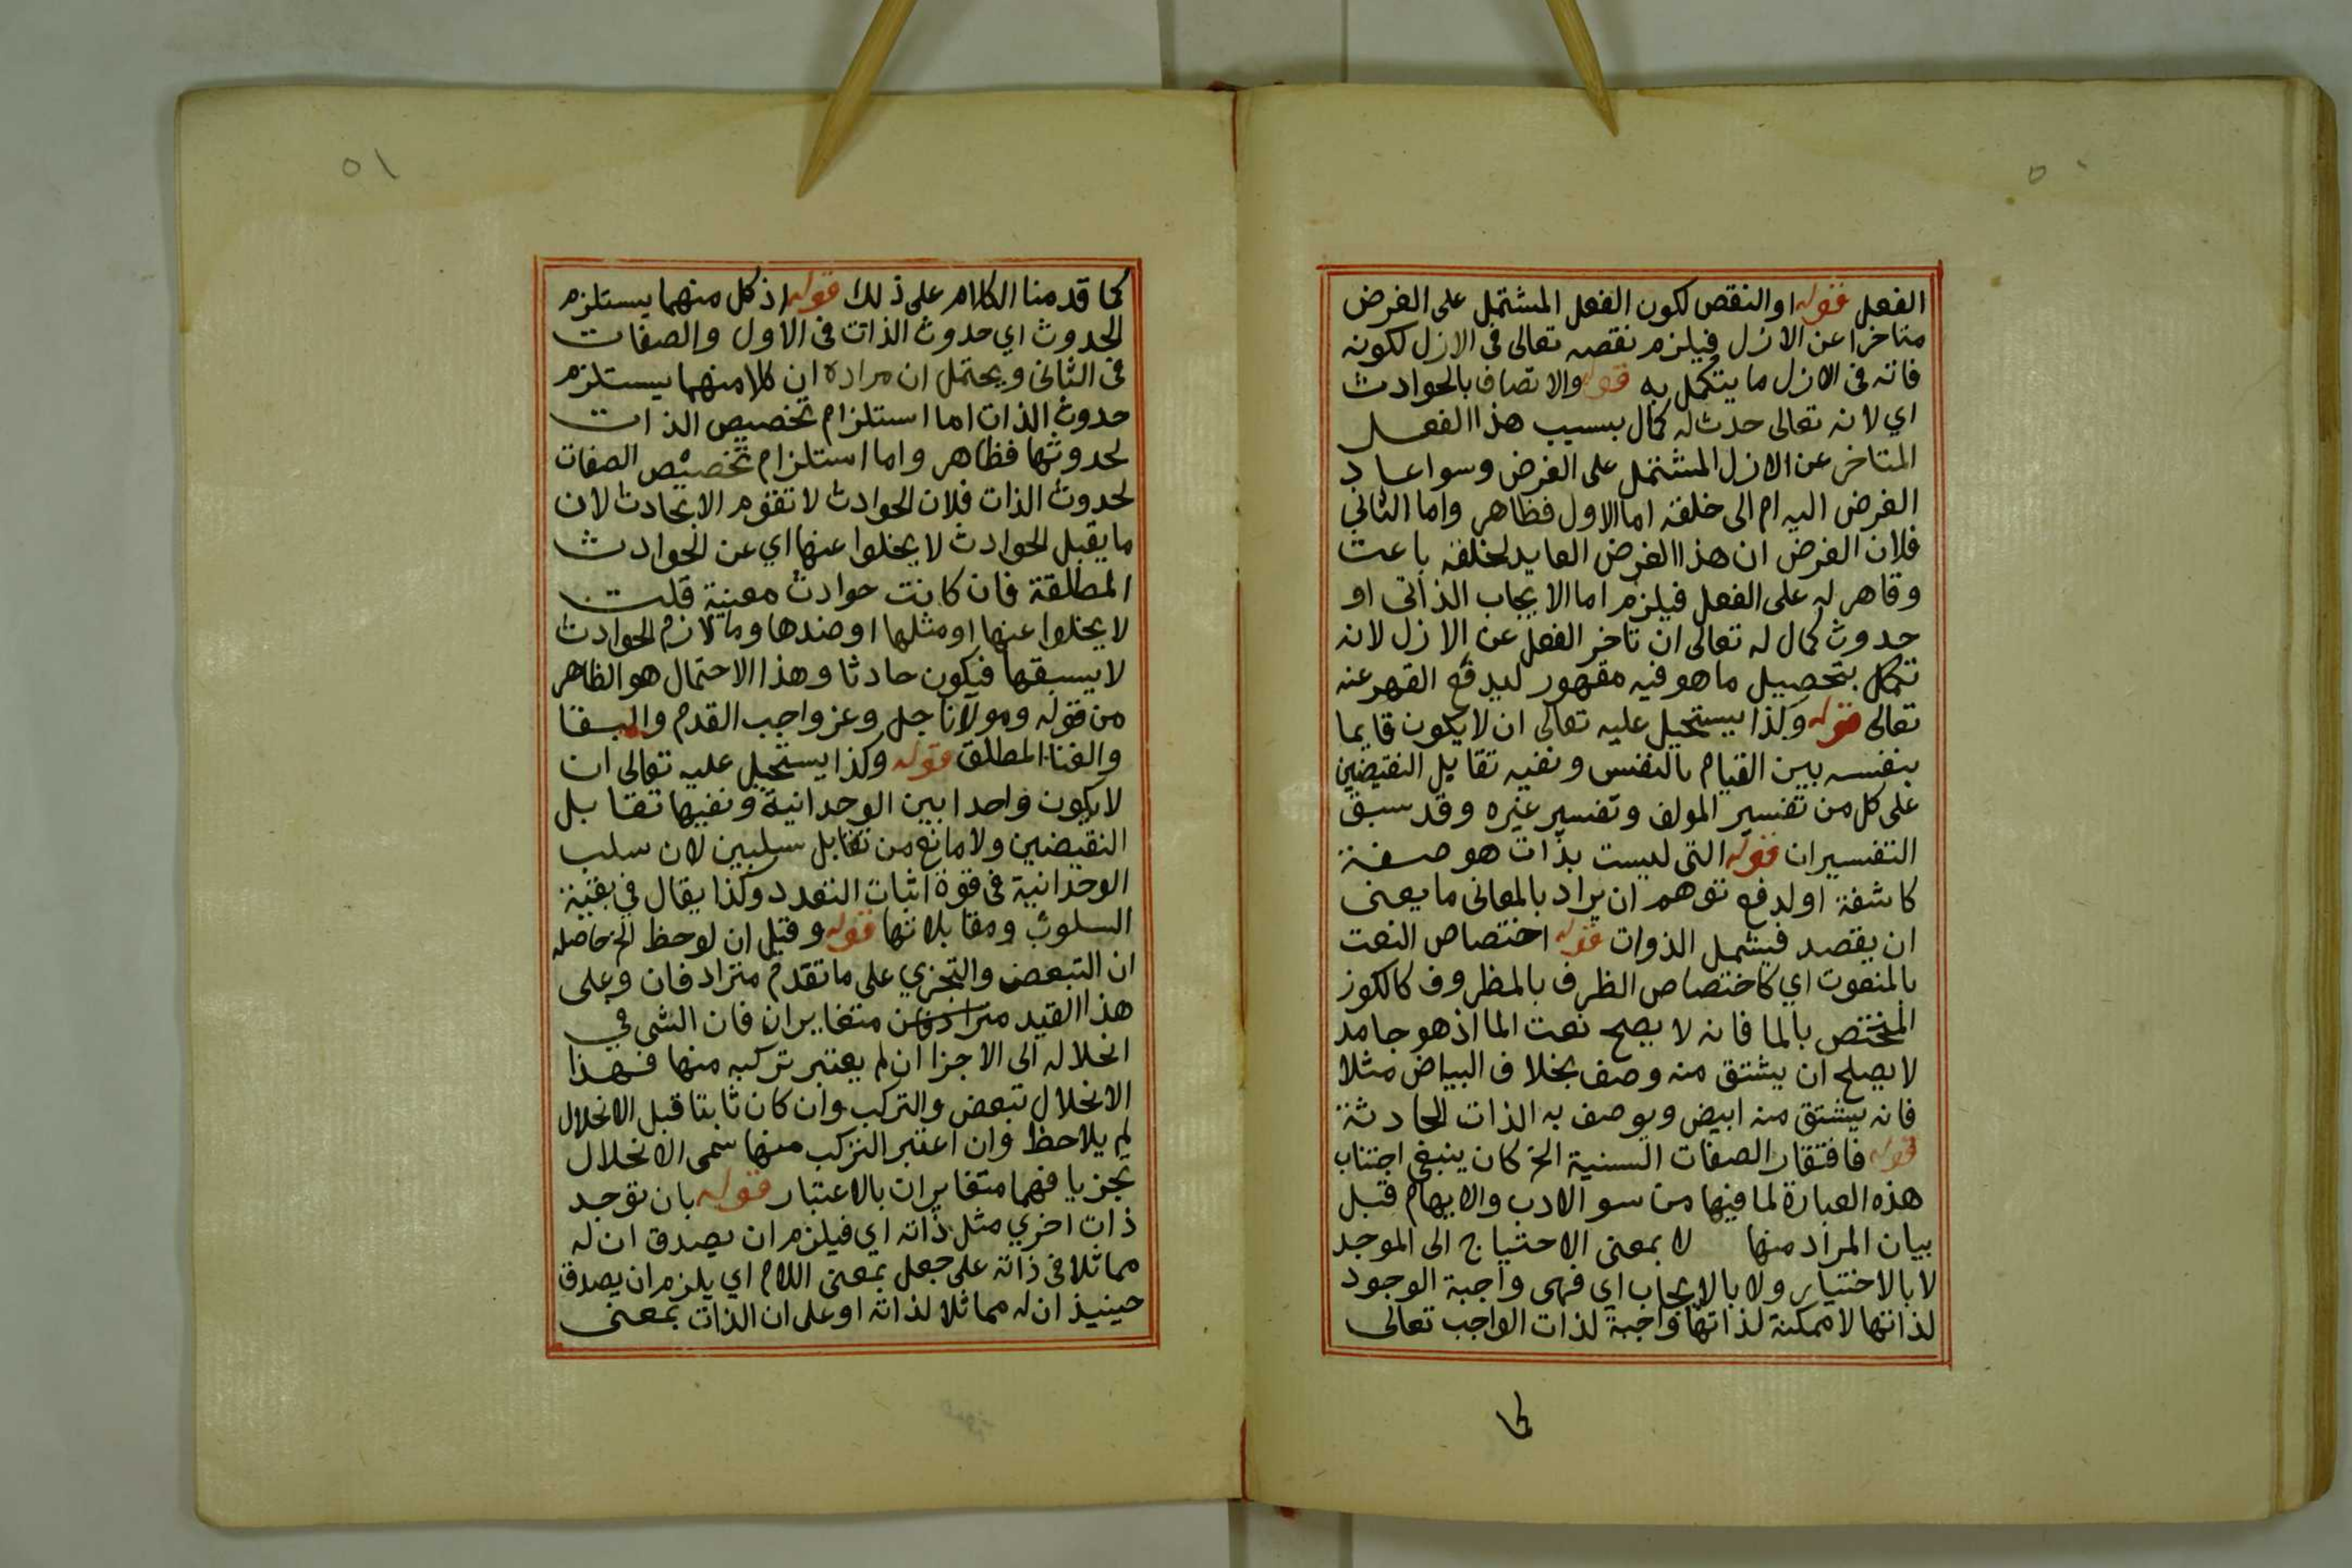 ٥٠
الفعل قوله او النقص لكون الفعل المشتمل على الغرض
متاخرا عن الازل فيلزم نقصه تعالى فى الازل لكونه
فاته فى الازل ما يتكمل به قوله والاتصاف بالحوادث
اي لانه تعالى حدث له كمال بسبب هذا الفعل
المتاخر عن الازل المشتمل على الغرض وسوا عاد
الغرض اليه ام الى خلقه اما الاول فظاهر واما الثاني
فلان الغرض ان هذا الغرض العايد لخلقه باعث
وقاهر له على الفعل فيلزم اما الايجاب الذاتى او
حدوث كمال له تعالى ان تاخر الفعل عن الازل لانه
تكمل بتحصيل ما هو فيه مقهور ليدفع القهر عنه
تعالى قوله وكذا يستحيل عليه تعالى ان لا يكون قايما
بنفسه بين القيام بالنفس ونفيه تقابل النقيضين
على كل من تفسير المولف وتفسير غيره وقد سبق
التفسيران قوله التى ليست بذات هو صفة
كاشفة او لدفع توهم ان يراد بالمعانى ما يعنى
ان يقصد فيشمل الذوات قوله اختصاص النعت
بالمنعوت اي كاختصاص الظرف بالمظروف كالكوز
المختص بالما فانه لا يصح نعت الما اذ هو جامد
لا يصلح ان يشتق منه وصف بخلاف البياض مثلا
فانه يشتق منه ابيض ويوصف به الذات الحادثة
قوله فافتقار الصفات السنية الخ كان ينبغى اجتناب
هذه العبارة لما فيها من سو الادب والايهام قبل
بيان المراد منها لا بمعنى الاحتياج الى الموجد
لا بالاختيار ولا بالايجاب اي فهى واجبة الوجود
لذاتها لا ممكنة لذاتها واجبة لذات الواجب تعالى
كما
٥١
كما قدمنا الكلام على ذلك قوله اذ كل منهما يستلزم
الحدوث اي حدوث الذات فى الاول والصفات
فى الثانى ويحتمل ان مراده ان كلا منهما يستلزم
حدوث الذات اما استلزام تخصيص الذات
لحدوثها فظاهر واما استلزام تخصيص الصفات
لحدوث الذات فلان الحوادث لا تقوم الا بحادث لان
ما يقبل الحوادث لا يخلوا عنها اي عن الحوادث
المطلقة فان كانت حوادث معينة قلت
لا يخلوا عنها او مثلها او ضدها وما لازم الحوادث
لا يسبقها فيكون حادثا وهذا الاحتمال هو الظاهر
من قوله ومولانا جل وعز واجب القدم والبقا
والغنا المطلق قوله وكذا يستحيل عليه تعالى ان
لا يكون واحدا بين الوحدانية ونفيها تقابل
النقيضين ولا مانع من تقابل سلبين لان سلب
الوحدانية فى قوة اثبات التعدد وكذا يقال في بقية
السلوب ومقابلاتها قوله وقيل ان لوحظ الخ حاصله
ان التبعض والتجزي على ما تقدم مترادفان وعلى
هذا القيد مترادفان متغايران فان الشى في
انحلاله الى الاجزا ان لم يعتبر تركبه منها فهذا
الانحلال تبعض والتركب وان كان ثابتا قبل الانحلال
لم يلاحظ وان اعتبر التركب منها سمى الانحلال
تجزيا فهما متغايران بالاعتبار قوله بان توجد
ذات اخري مثل ذاته اي فيلزم ان يصدق ان له
مماثلا فى ذاته على جعل بمعنى اللام اي يلزم ان يصدق
حينيذ ان له مماثلا لذاته او على ان الذات بمعنى